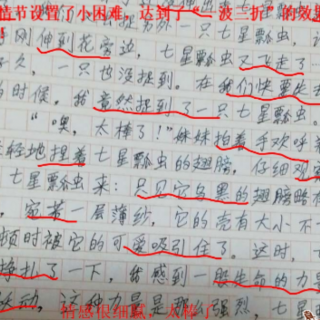 情节设置了小困难，达到了 波三折”的效果
另外一只七星瓢虫，
刚伸到花旁边，七星瓢虫又飞走了
久，一只也没捉到。在我们快要失
时候，我竟然捉到了一只七星瓢虫。
“噢，太棒了！”妹妹拍着手欢呼
轻地捏着七星瓢虫的翅膀，仔细观
七星瓢虫来：只见它乌黑的翅膀略
，宛若一层薄纱，它的壳有大小不
顿时被它的可爱吸引住了。这时，七
挣扎了一下，我感到一股生命的力量
跃动，这种力量是那么强烈，七星
情感很细腻，太棒了